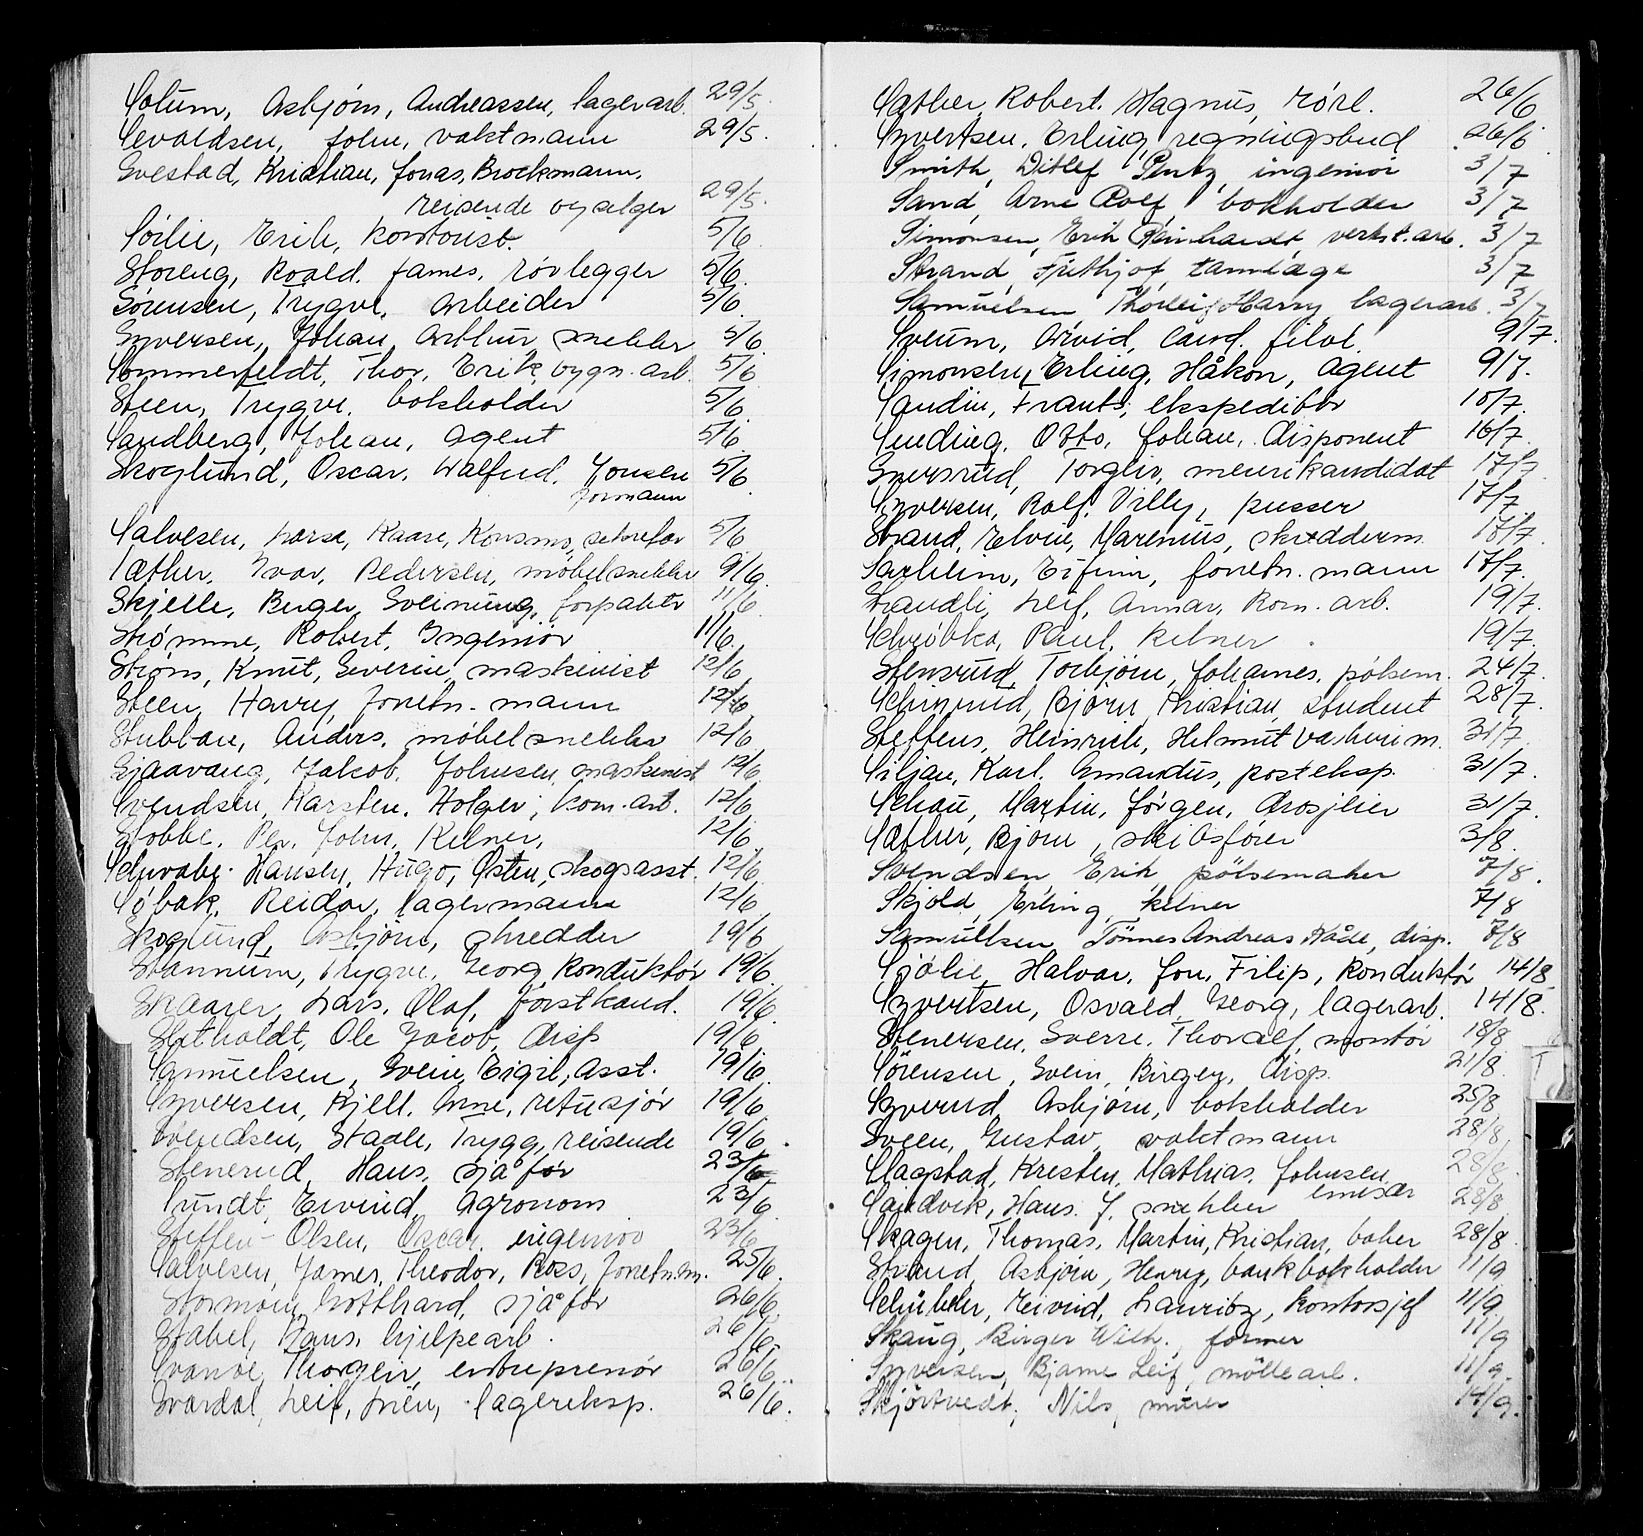 Solum, Asbjørn, Andreassen, lagerarb. 29/5.
Sevaldsen, John, vaktmann 29/5.
Svestad, Kristian, Jonas, Brockmann,
reisende og selger 29/5.
Söilie, Erik, kontorist. 5/6
Storeng, Roald. James, rörlegger 5/6.
Sørensen, Trygve, arbeider 5/6.
Syversen, Johan Arthur snekker 5/6.
Sommerfeldt, Thor, Erik, bygn. arb. 5/6
Steen, Trygve, bokholder 5/6
Sandberg, Johan, agent 5/6.
Skoglund, Oscar, Walfrid, Jonsen 5/6
formann
Salvesen, Lasse, Kaare, 5/6
Sæther, Ivar, Pedersen, møbelsnekker 9/6.
Skjelle, Birger, forpakter 11/6
Strømme, Robert, Ingeniør 11/6.
Strøm, Knut, Severin, maskinist 12/6
Steen, Harry, forretn. mann 12/6
Stubban, Anders, møbelsnekker 12/6
Sjaavaag, Jakob, Johnsen, maskinist 12/6
Svendsen, Karsten, Holger, kom. arb. 12/6
Stobbe, Per, John, Kelner, 12/6.
Schwabe-Hansen, Hugo, Østen, skogsasst. 12/6
Söbak, Reidar, lagermann 12/6
Skoglund, Asbjørn, skredder 19/6
Stannum, Trygve, Georg, konduktör 19/6.
Skaarer, Lars, Olaf, forstkand. 19/6.
Stitholdt, Ole Jacob, disp 19/6.
Samuelsen, Svein, Eigil, Asst. 19/6.
Syversen, Kjell, Arne, retusjør 19/6.
Svendsen, Staale, Trygg, reisende 19/6.
Stenerud, Hans, sjåfør 23/6
Sundt, Eivind, Agronom 23/6
Steffen-Olsen, Oscar, ingeniør 23/6
Salvesen, James, Theodor, Ross, forretn.m. 25/6.
Stormoen, Gotthard, sjåfør 26/6
Stabel, Hans, hjelpearb. 26/6.
Svanøe, Thorgeir, entreprenør 26/6.
Svardal, Leif, lagereksp. 26/6.
Sæther, Robert, Magnus, rörl. 26/6
Syvertsen, Erling, regningsbud 26/6
Smith, Ditlef Pentz, ingeniør 3/7
Sand, Arne Rolf, bokholder 3/7
Simonsen, Erik Reinhardt verkst. arb. 3/7
Strand, Frithjof, tannlæge 3/7
Samuelsen, Thorleif Harry, lagerarb. 3/7
Sveum, Arvid, cand. filol. 9/7.
Simonsen, Erling, Håkon, agent 9/7.
Sandin, Frants, ekspeditör 10/7.
Sinding, Otto, Johan, disponent 16/7.
Syversrud, Torgeir, meierikandidat 17/7
Syversen, Rolf, Villy, pusser 17/7.
Strand, Elvin, Marenius, skredderm. 17/7.
Sæhlim, Eifinn, forretn. mann 17/7.
Strandli, Leif, Annar, kom. arb. 19/7.
Schröbka, Paul, kelner 19/7.
Stensrud, Torbjørn, Johannes, pølsem. 24/7.
Schinrud, Bjørn, Kristian, student 28/7.
Steffens, Heinrich, Helmut 31/7.
Siljan, Karl, Amandus, posteksp. 31/7.
Schau, Martin, Jörgen, drosjeeier 31/7.
Sæther, Bjørn, skibsfører 3/8.
Svendsen Erik, pölsemaker 7/8.
Skjold, Erling, kelner 7/8
Samuelsen, Tönnes Andreas Kåle, disp. 7/8
Sjölie, Halvar, Jon, Filip, konduktør 14/8.
Syvertsen, Osvald, Georg, lagerarb. 14/8.
Stenersen, Sverre, Thoralf, montør 18/8
Sörensen, Svein, Birger, disp. 21/8.
Syverud, Asbjørn, bokholder 25/8
Sveen, Gustav, vaktmann 28/8
Slagstad, Kresten, Mathias, Johnsen, 28/8.
emisær
Sandvik, Hans. J. snekker 28/8
Skagen, Thomas, Martin, Kristian, baker 28/8
Strand, Asbjørn, Henry, bankbokholder 11/9
Schübeler, Eivind, Lauritz, kontorsjef 11/9.
Skaug, Birger Wilh., former 11/9
Syversen, Bjarne Leif, möllearb. 11/9.
Skjörtvedt, Nils, murer 14/9.
T